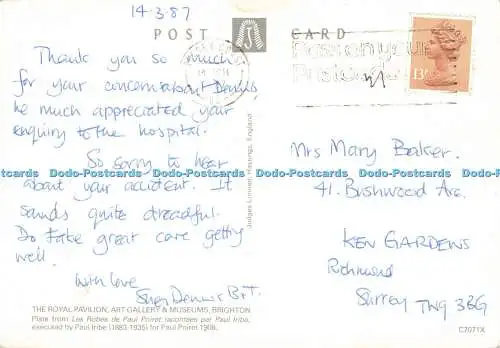 14.3.87
POST CARD
Thank you so much
for your concern about Dennis
he much appreciated your
enquiry to the hospital.
So sorry to hear
about your accident. It
sounds quite dreadful.
Do take great care getting
well.
With love
Dennis
Judges Limited, Hastings, England
13
Mrs Mary Baker.
41. Bushwood Ave.
KEW GARDENS
Richmond
Surrey TW9 3BG
Dodo-Postcards Dodo-Postcards Dodo-Postcards Dodo-Postcards
THE ROYAL PAVILION, ART GALLERY & MUSEUMS, BRIGHTON
Plate from Les Robes de Paul Poiret racontées par Paul Iribe,
executed by Paul Iribe (1883-1935) for Paul Poiret 1908.
C7071X